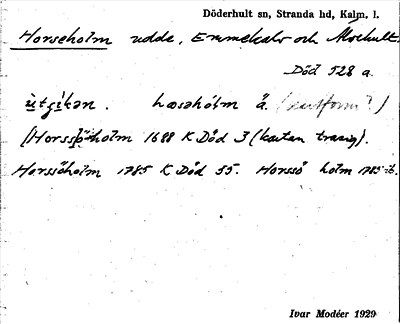 Döderhult sn, Stranda hd, Kalm. l.
Horseholm udde, Emmekalv och
Död 528 a.
ùtʒíkan. hasahólm ä.
(Horssö-holm 1688 K Död 3 (kartan trasig).
Horssöholm 1785 K Död 55. Horssö holm 1785 ib.
Ivar Modéer 1929